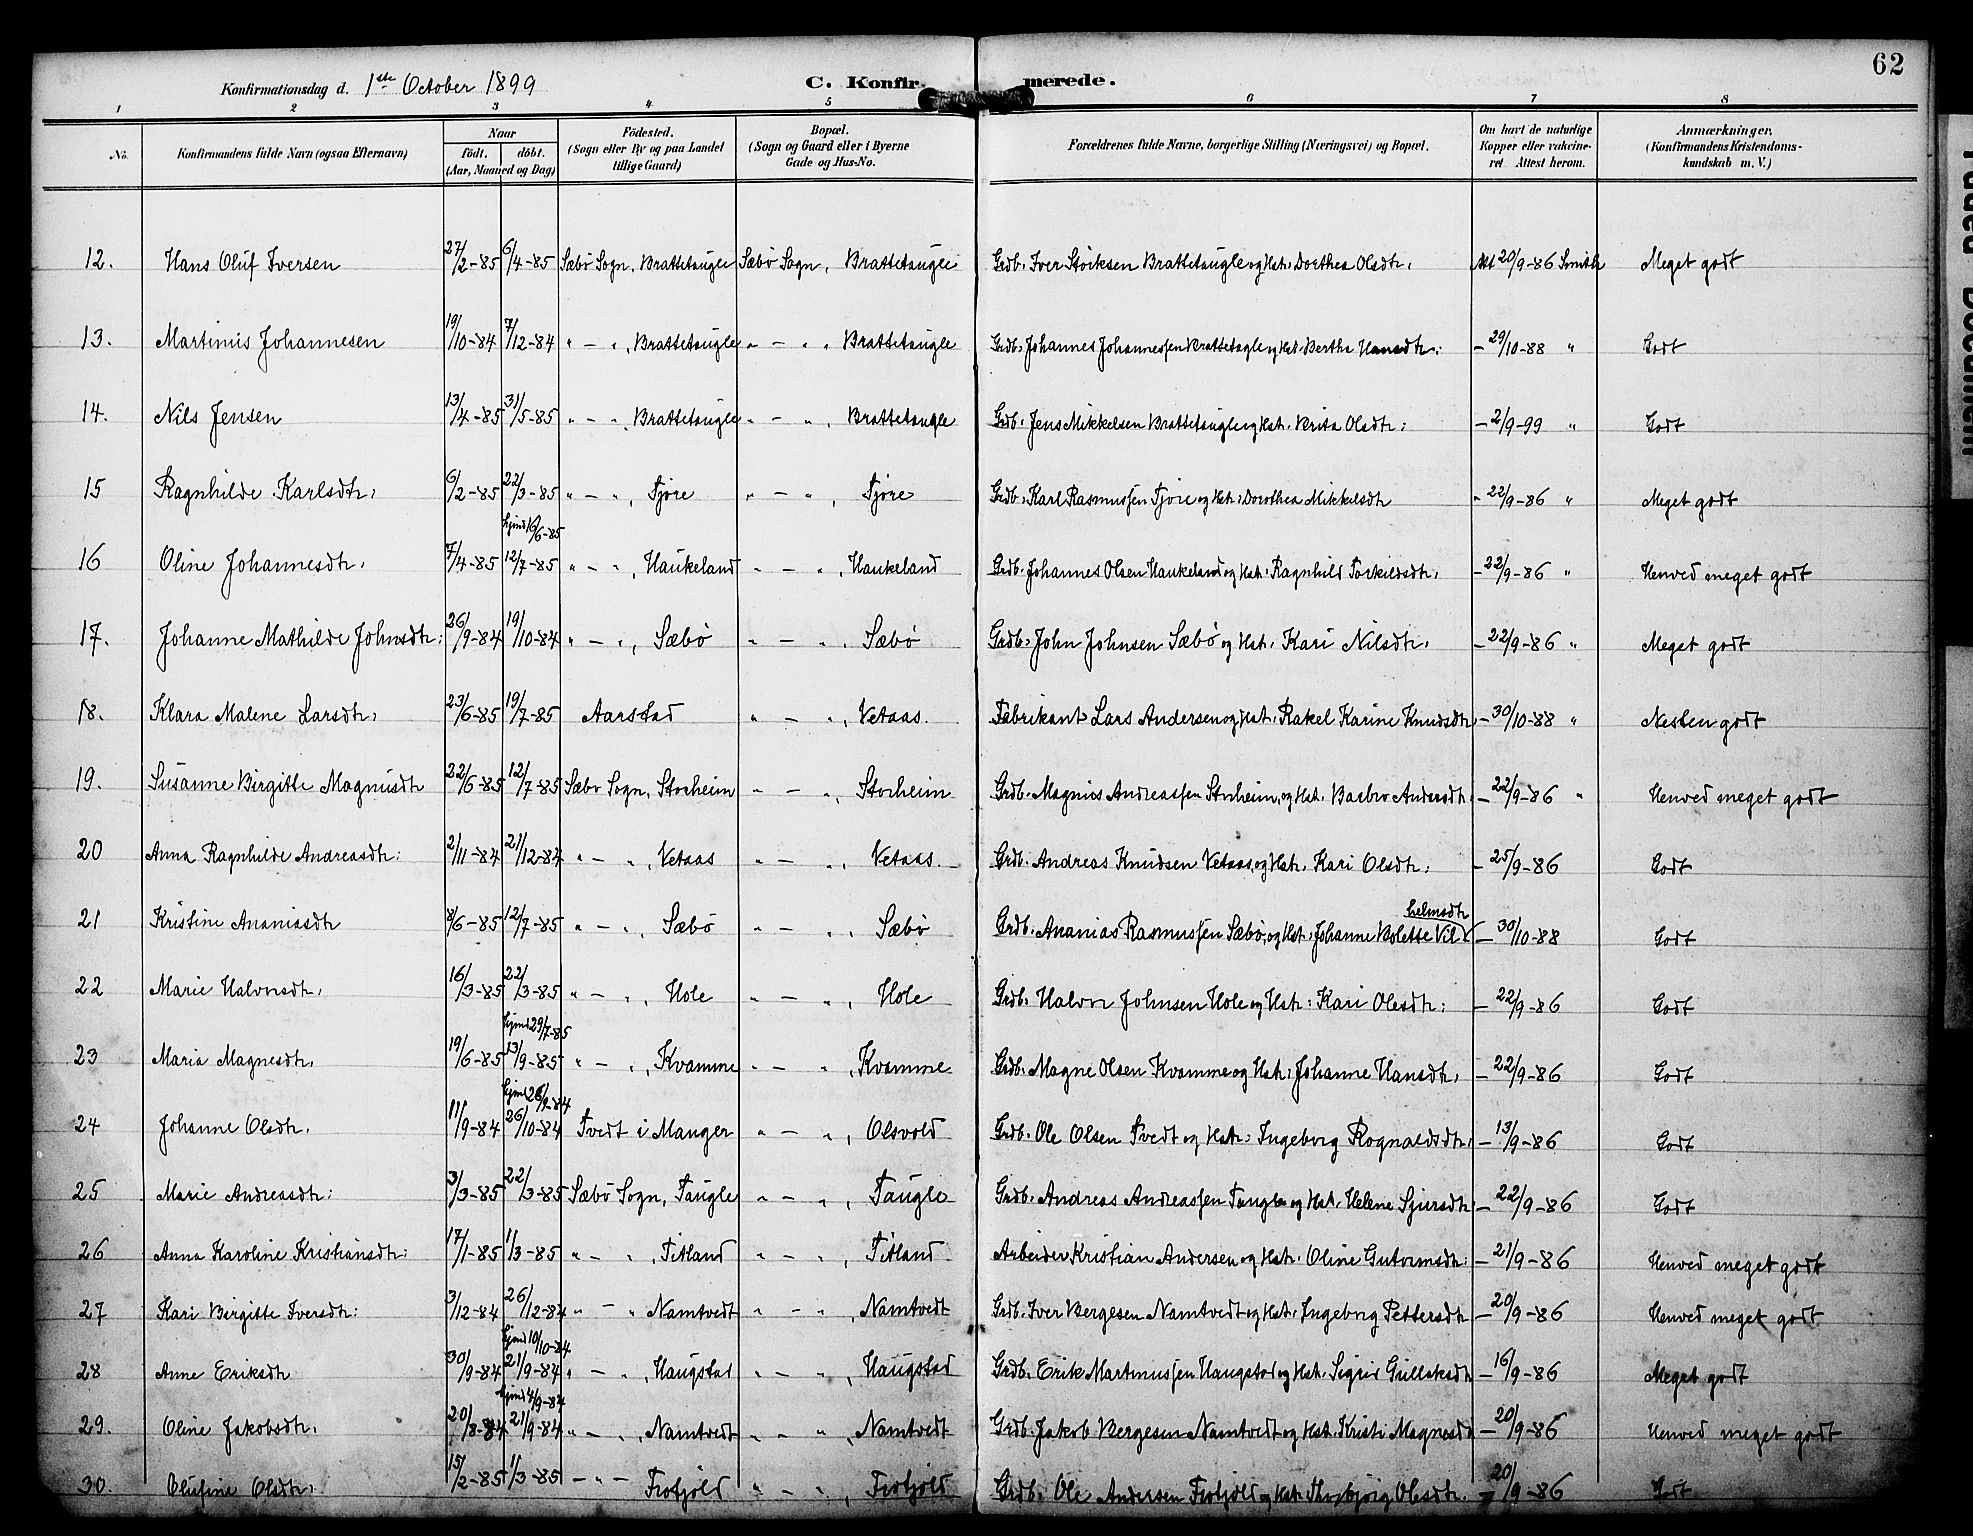 62
Konfirmationsdag d. 1ste October 1899 C. Konfirmerede.
1 2 3 4 5 6 7 8
No. Konfirmandens fulde Navn (ogsaa Efternavn) Naar født. døbt. (Aar, Maaned og Dag) Fødested. (Sogn eller By og paa Landet tillige Gaard) Bopæl. (Sogn og Gaard eller i Byerne Gade og Hus-No. Forældrenes fulde Navne, borgerlige Stilling (Næringsvei) og Bopæl. Om havt de naturlige Kopper eller vakcineret. Attest herom. Anmærkninger, (Konfirmandens Kristendomskundskab m. V.)
12. Hans Oluf Iversen 27/2-85 6/4-85 Sæbø Sogn, Brattetaugle Sæbø Sogn, Brattetaugle Grdb. Iver Størksen Brattetaugle og Hst. Dorthea Olsdtr. Att 20/9-86 Smith Meget godt
13. Martinus Johannesen 19/10-84 7/12-84 " - ", Brattetaugle " - ", Brattetaugle Grdb. Johannes Johannessen Brattetagle og Hst. Bertha Hansdtr. - 29/10-88 " Godt
14. Nils Jensen 13/4-85 31/5-85 " - ", Brattetaugle " - ", Brattetaugle Grdb. Jens Mikkelsen Brattetaugle og Hst. Brita Olsdtr. - 2/9-99 " Godt
15 Ragnhilde Karlsdtr. 6/2-85 22/3-85 " - ", Fjøre " - ", Fjøre Grdb. Karl Rasmussen Fjøre og Hst. Dorothea Mikkelsdtr " 22/9-86 " Meget godt
16 Oline Johannesdtr. 7/4-85 hjmd 16/6-85 12/7-85 " - ", Haukeland " - ", Haukeland Grdb. Johannes Olsen Haukeland og Hst. Ragnhild Torkildsdtr. - 22/9-86 " Henved meget godt
17. Johanne Mathilde Johnsdtr. 26/9-84 19/10-84 " - ", Sæbø " - ", Sæbø Grdb. John Johnsen Sæbø og Hst. Kari Nilsdtr. - 22/9-86 " Meget godt
18. Klara Malene Larsdtr. 23/6-85 19/7-85 Aarstad " - ", Vetaas. Fabrikant Lars Andersen og Hst. Rakel Karine Knudsdtr. - 30/10-88 " Nesten godt
19. Susanne Birgitte Magnusdtr 22/6-85 12/7-85 Sæbø Sogn, Storheim " - ", Storheim Grdb. Magnus Andreassen Storheim, og Hst. Barbro Andersdtr. - 22/9-86 " Henved meget godt
20 Anna Ragnhilde Andreasdtr. 2/11-84 21/12-84 " - ", Vetaas " - ", Vetaas. Grdb. Andreas Knudsen Vetaas, og Hst. Kari Olsdtr. - 25/9-86 Godt
21 Kristine Ananiasdtr 8/6-85 12/7-85 " - ", Sæbø " - ", Sæbø Grdb. Ananias Rasmussen Sæbø, og Hst. Johanne Bolette Vilhelmsdtr - 30/10-88 Godt
22 Marie Halvorsdtr. 16/3-85 22/3-85 " - ", Hole " - ", Hole Grdb. Halvor Johnsen Hole og Hst. Kari Olesdtr. - 22/9-86 Godt
23 Maria Magnesdtr. 19/6-85 hjmd 29/7-85 13/9-85 " - ", Kvamme " - ", Kvamme Grdb. Magne Olsen Kvamme og Hst. Johanne Hansdtr. - 22/9-86 Godt
24 Johanne Olsdtr. 11/9-84 hjmd 26/9-84 26/10-84 Tvedt i Manger " - ", Olsvold Grdb. Ole Olsen Tvedt og Hstr. Ingeborg Rognaldsdtr. - 13/9-86 Godt
25 Marie Andreasdtr. 3/3-85 22/3-85 Sæbø Sogn, Taugle " - ", Taugle Grdb. Andreas Andreassen Taugle og Hst. Helene Sjursdtr. - 22/9-86 Godt
26 Anna Karoline Kristiansdtr. 17/1-85 1/3-85 " - ", Titland " - ", Titland Arbeider Kristian Andersen og Hst. Oline Gutormsdtr. - 21/9-86 Henved meget godt
27 Kari Birgitte Iversdtr. 3/12-84 26/12-84 " - " Namtvedt " - ", Namtvedt Grdb. Iver Bergesen Namtvedt og Hst. Ingeborg Pettersdtr - 20/9-86 Henved meget godt
28 Anne Eriksdtr 30/9-84 hjmd 10/10-84 21/9-84 " - ", Haugstad " - ", Haugstad Grdb. Erik Martinussen Haugstad og Hst. Sigrid - 16/9-86 Meget godt
29. Oline Jakobsdtr. 20/8-84 hjmd 4/9-84 21/9-84 " - ", Namtvedt " - ", Namtvedt Grdb. Jakob Bergesen Namtvedt og Hst. Kristi Magnesd - 20/9-86 Henved meget godt
30. Olufine Olsdtr. 15/2-85 1/3-85 - " - Frotjold " - ", Frotjold Grdb. Ole Andersen Frotjold og Hst. Thorbjørg Olesdtr. - 20/9-86 Godt